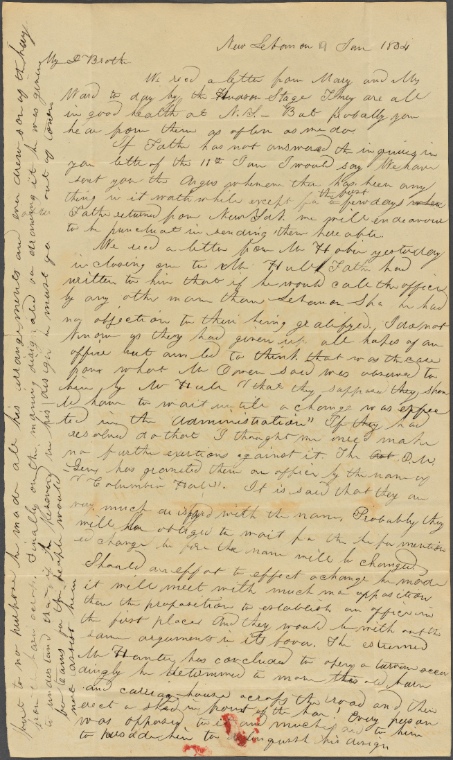 New Lebanon 21 Jan 1834
My D Broth
We recd a letter from Mary and Mr
Ward to day by the Hudson Stage They are all
in good health at N.B.— But probably you
hear from them as often as we do
If Father has not answered the inquiries in
your letter of the 11th Jan I would say We have
sent you the Argus whenever there has been any
thing in it worth while except for the past few days when
Father returned from New York we will endeavour
to be punctual in sending them here after
We recd a letter from Mr yesterday
inclosing one to Mr Hull Father had
written to him that if he would call the office
by any other name than Lebanon Spa he had
no objection to their being gratifyed, I do not
know if they had given up all hopes of an
office but am led to think that was the case
from what Mr Coven said was observed to
him by Mr Hull "that they supposed they should
have to wait until a change was effec
ted in the Administration" If they had
resolved do that I thought we once make
no further exertions against it. The P.M.
Genl has granted them an office by the name of
"Columbia Hall". It is said that they are
very much with the name, Probably they
will be obliged to wait for the before mention
ed change before the name will be changed
Should an effort to effect a change be made
it will meet with much more opposition
than the proposition to establish an office in
the first place And they would be without the
same arguments in its favor. The esteemed
Mr Hunter has concluded to open a tavern accor
dingly he determined to move the old barn
and carriage-house across the road and then
erect a shed in front of the barn! Every person
was opposed to it and much said to him
to persuade him to relinquish his design
but to no purpose he made all his arrangements and even drew some of the hay
from the barn across. Finally on the morning assigned on drawing it he was given
to understand that if he persevered in his design he must go out of town
for teams for the people would
not assist him